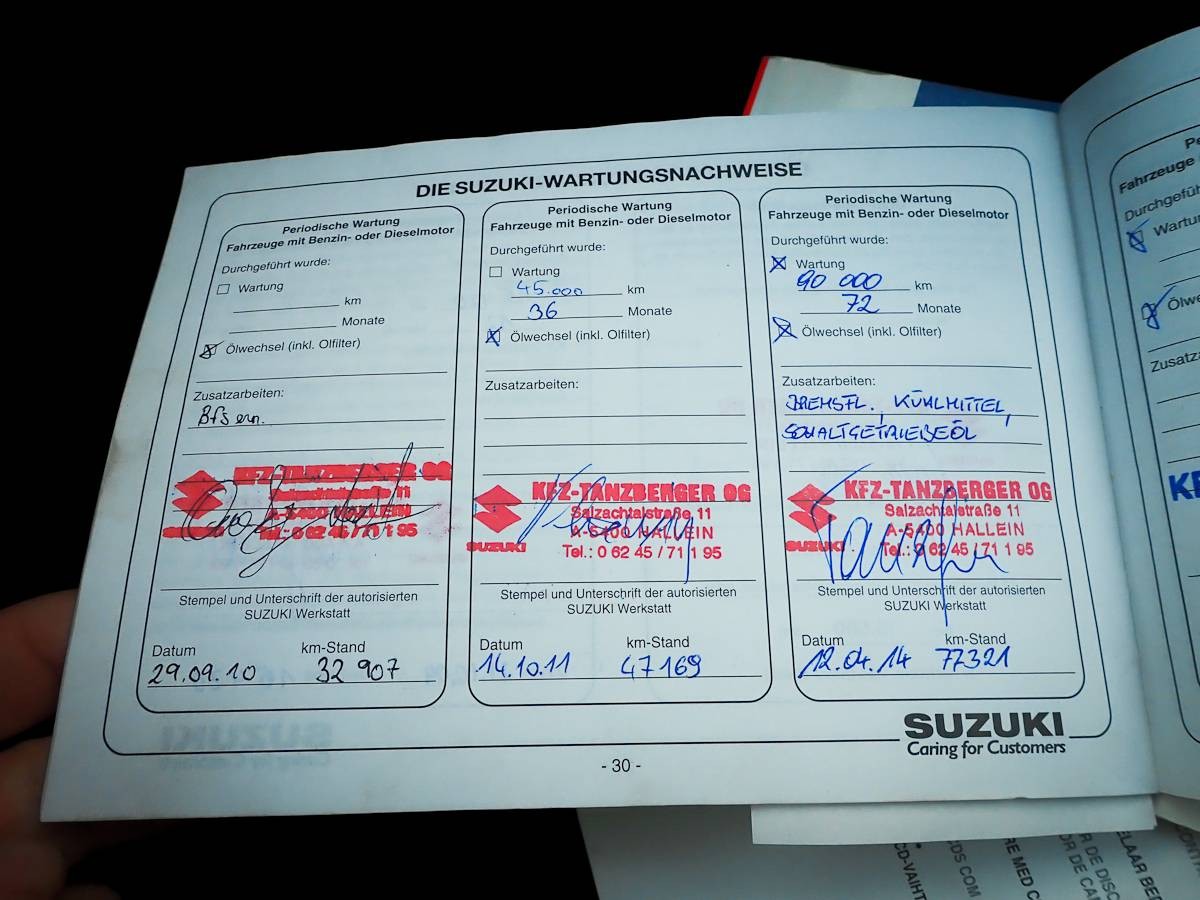 DIE SUZUKI-WARTUNGSNACHWEISE
Periodische Wartung
Fahrzeuge mit Benzin- oder Dieselmotor
Durchgeführt wurde:
Wartung
km
Monate
Ölwechsel (inkl. Olfilter)
Zusatzarbeiten:
KFZ-TANZBERGER OG
A-5400 HALLEIN
Tel.: 0 62 45 / 71 1 95
Stempel und Unterschrift der autorisierten
SUZUKI Werkstatt
Datum km-Stand
29.09.10 32 907
Periodische Wartung
Fahrzeuge mit Benzin- oder Dieselmotor
Durchgeführt wurde:
Wartung
45.000 km
36 Monate
Ölwechsel (inkl. Olfilter)
Zusatzarbeiten:
KFZ-TANZBERGER OG
Salzachtalstraße 11
A-5400 HALLEIN
SUZUKI Tel.: 0 62 45 / 71 1 95
Stempel und Unterschrift der autorisierten
SUZUKI Werkstatt
Datum km-Stand
14.10.11 47169
Periodische Wartung
Fahrzeuge mit Benzin- oder Dieselmotor
Durchgeführt wurde:
Wartung
90 000 km
72 Monate
Ölwechsel (inkl. Olfilter)
Zusatzarbeiten:
BREMSFL., KÜHLMITTEL,
SCHALTGETRIEBEÖL
KFZ-TANZBERGER OG
Salzachtalstraße 11
A-5400 HALLEIN
SUZUKI Tel.: 0 62 45 / 71 1 95
Stempel und Unterschrift der autorisierten
SUZUKI Werkstatt
Datum km-Stand
12.04.14 77321
SUZUKI
Caring for Customers
- 30 -
Fahrzeuge